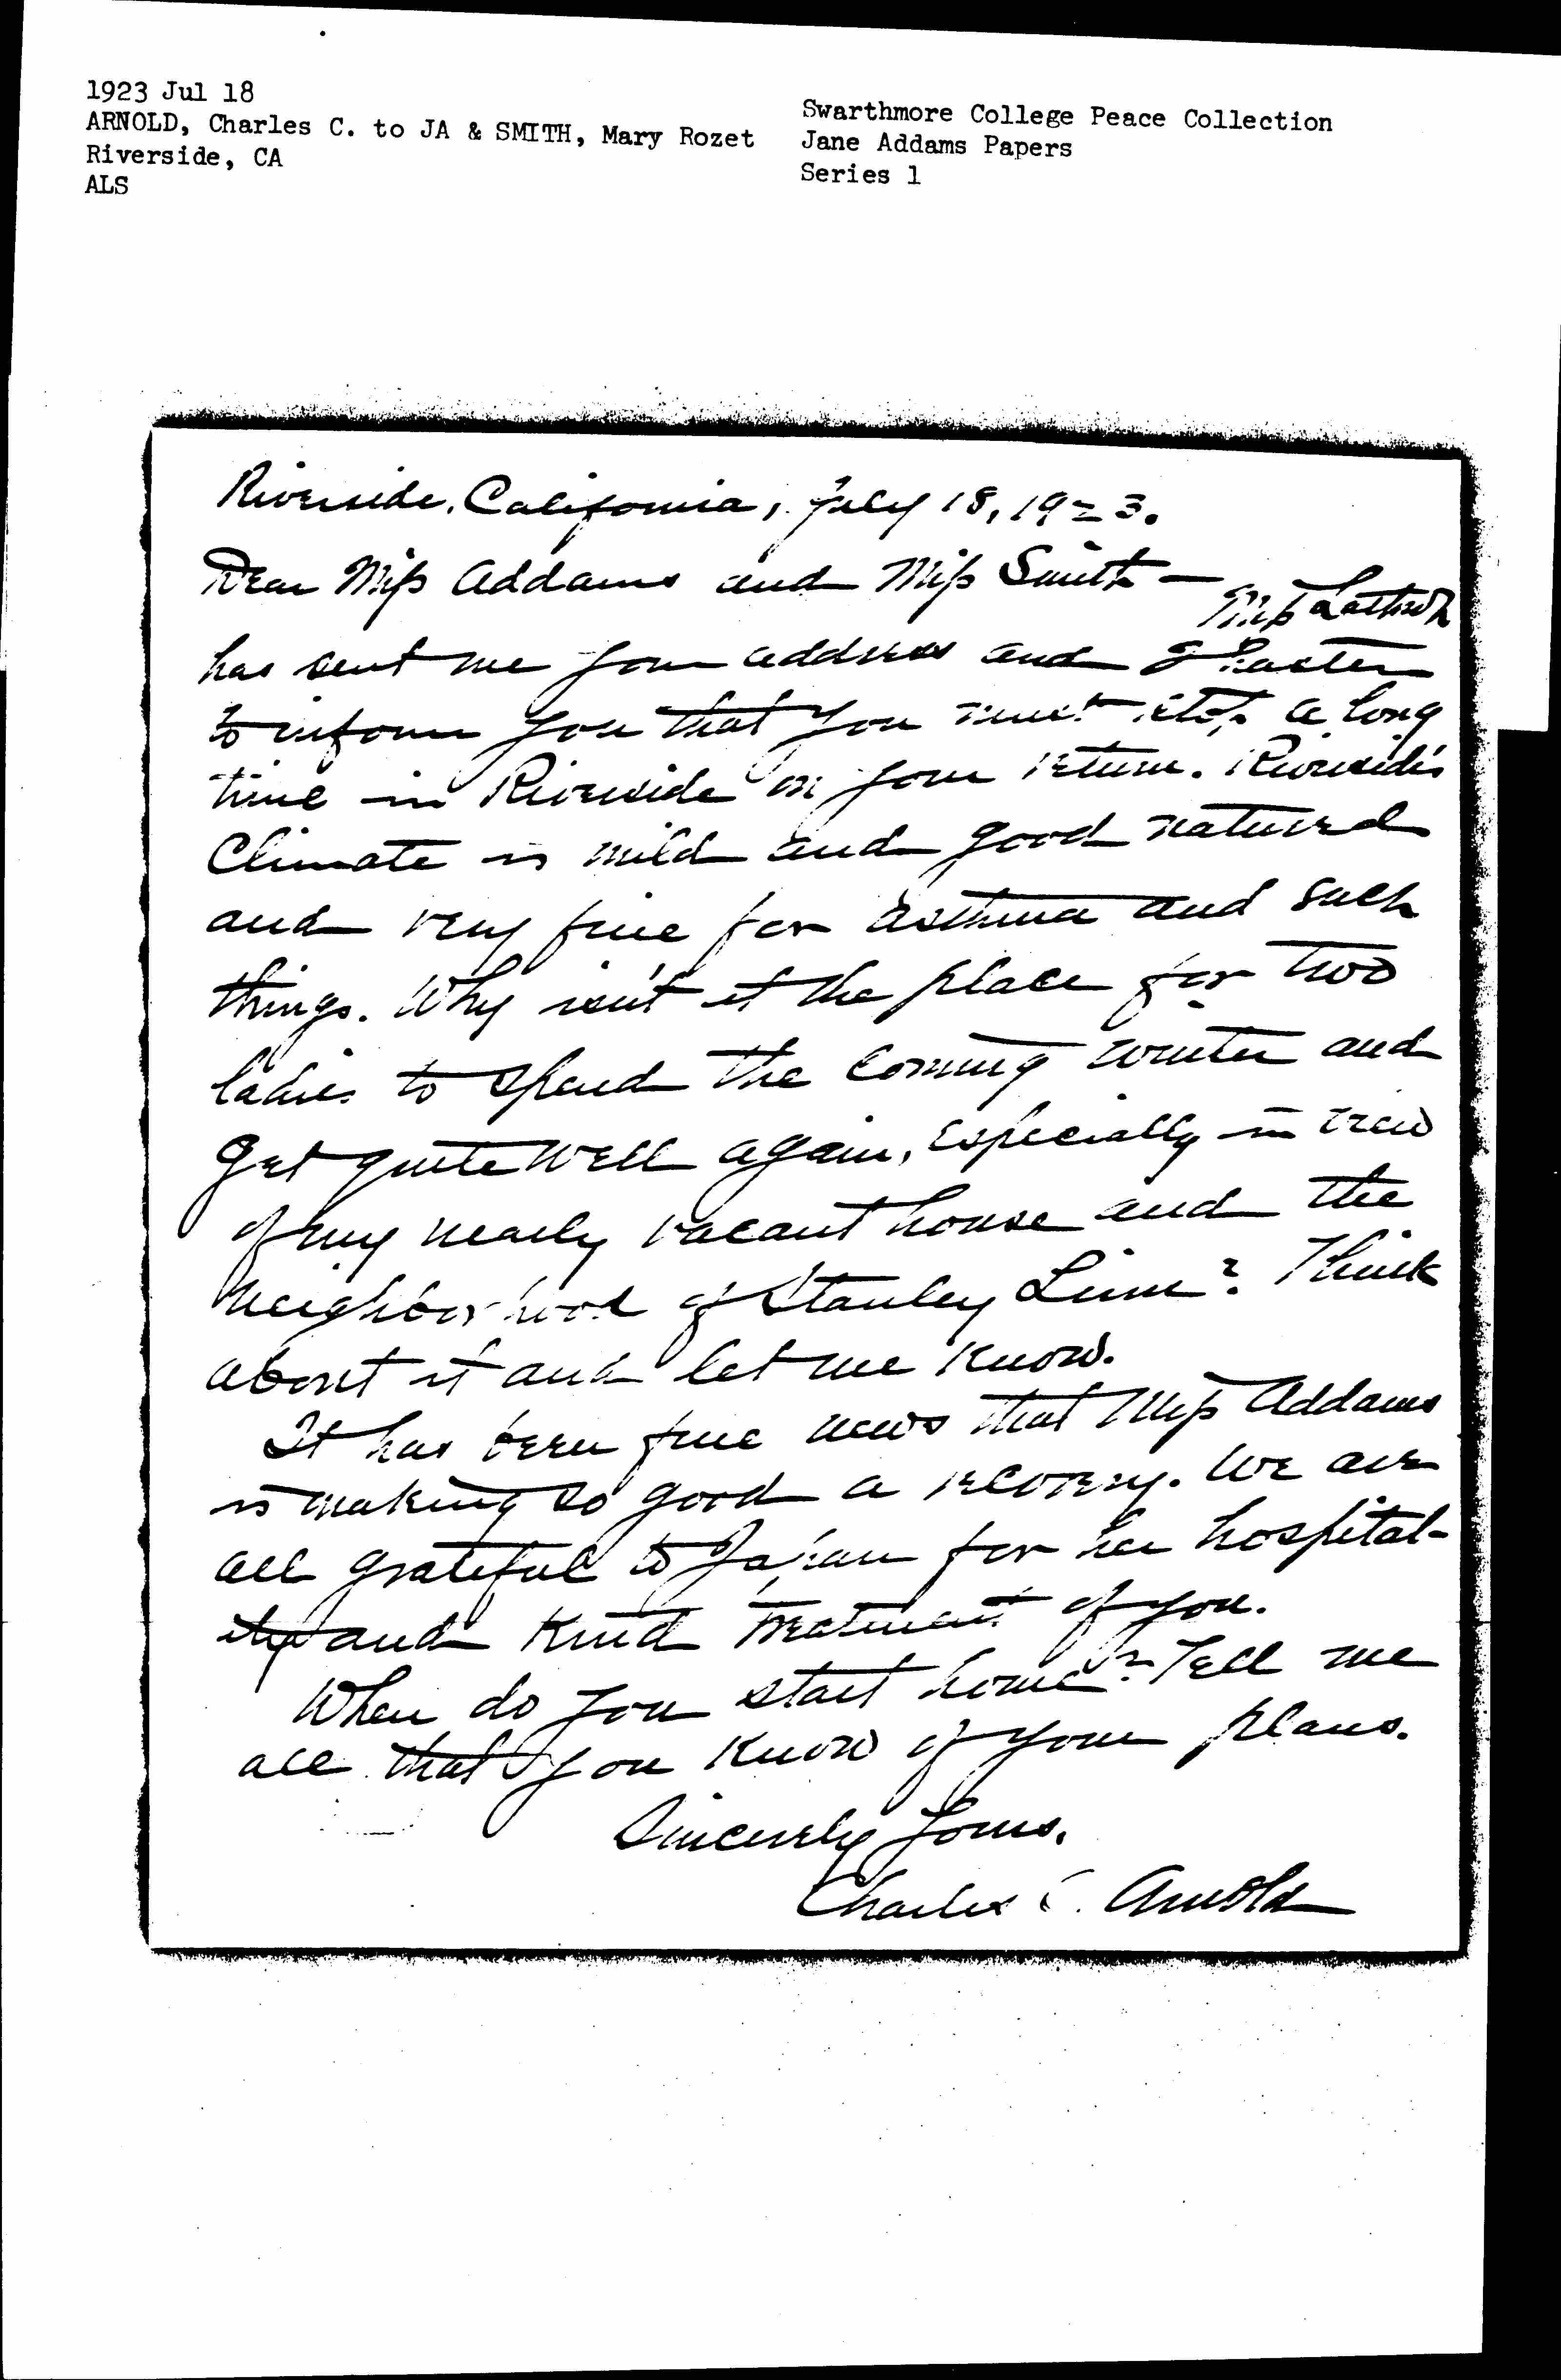 1923 Jul 18
ARNOLD, Charles C. to JA & SMITH, Mary Rozet
Riverside, CA
ALS
Swarthmore College Peace Collection
Jane Addams Papers
Series 1
Riverside, California, July 18, 1923.
Dear Miss Addams and Miss Smith —
Miss Lathrop
has sent me your address and I hasten
to inform you that you must stop a long
time in Riverside on your return. Riverside's
Climate is mild and good natured
and very fine for asthma and such
things. Why isn't it the place for two
ladies to spend the coming winter and
get quite well again, especially in view
of my nearly vacant house and the
neighborhood of Stanley Linn? Think
about it and let me know.
It has been fine news that Miss Addams
is making so good a recovery. We are
all grateful to Japan for her hospital-
ity and kind treatment of you.
When do you start home? Tell me
all that you know of your plans.
Sincerely Yours,
Charles C. Arnold